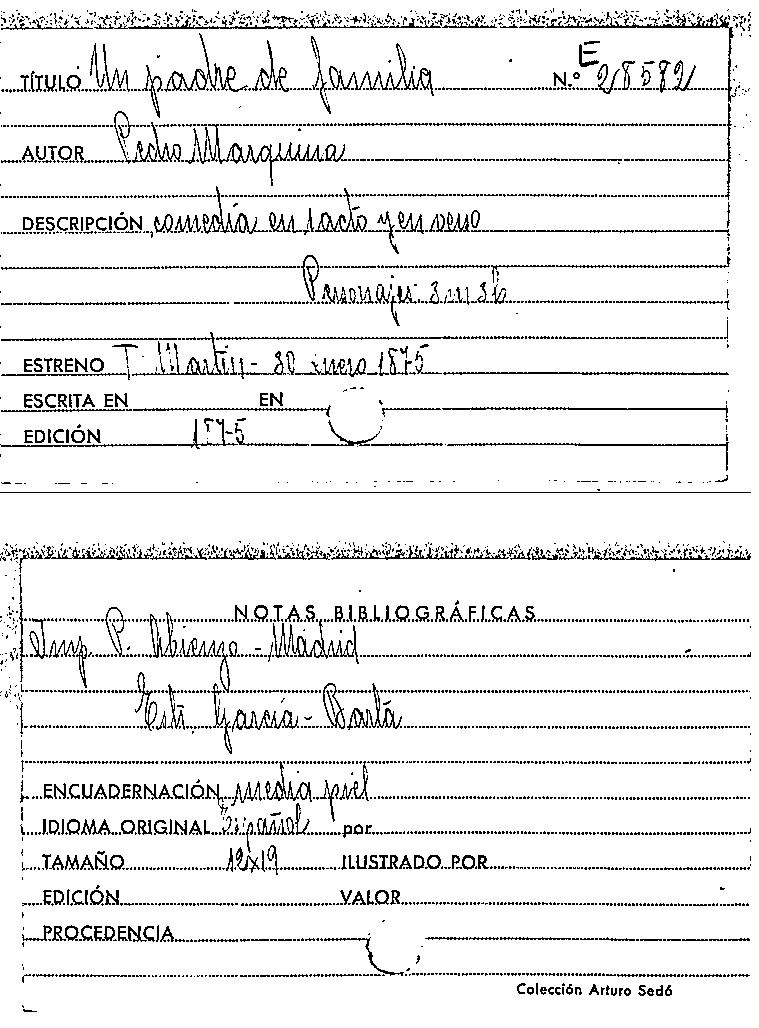 TÍTULO Un padre de familia N.º E 28582
AUTOR Pedro Marquina
DESCRIPCIÓN comedia en 1 acto y en verso
Personajes: 3m 3h
ESTRENO T. Martín - 30 enero 1875
ESCRITA EN EN
EDICIÓN 1875
NOTAS BIBLIOGRÁFICAS
Imp. P. Abienzo - Madrid
Estr. García - Barta
ENCUADERNACIÓN media piel
IDIOMA ORIGINAL Español por
TAMAÑO 12x19 ILUSTRADO POR
EDICIÓN VALOR
PROCEDENCIA
Colección Arturo Sedó